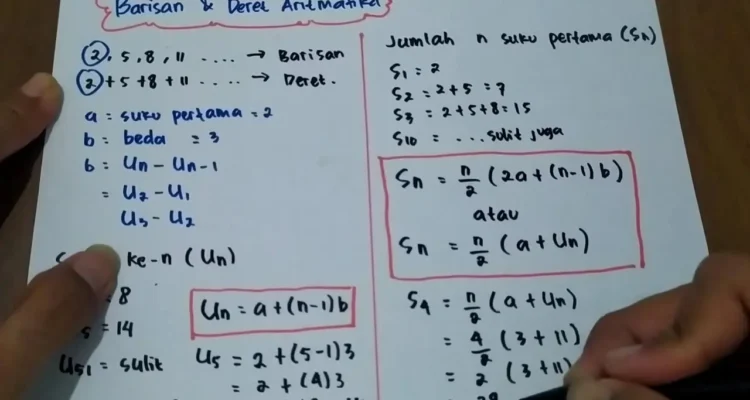 Barisan & Deret Aritmatika
2, 5, 8, 11 .... → Barisan
2 + 5 + 8 + 11 .... → Deret.
a = suku pertama = 2
b = beda = 3
b = Un - Un-1
= U2 - U1
U3 - U2
ke-n (Un)
= 8
= 14
U51 = sulit
Un = a + (n-1) b
U5 = 2 + (5-1) 3
= 2 + (4) 3
Jumlah n suku pertama (Sn)
S1 = 2
S2 = 2 + 5 = 7
S3 = 2 + 5 + 8 = 15
S10 = ... sulit juga
Sn = n/2 (2a + (n-1) b)
atau
Sn = n/2 (a + Un)
S4 = n/2 (a + Un)
= 4/2 (3 + 11)
= 2 (3 + 11)